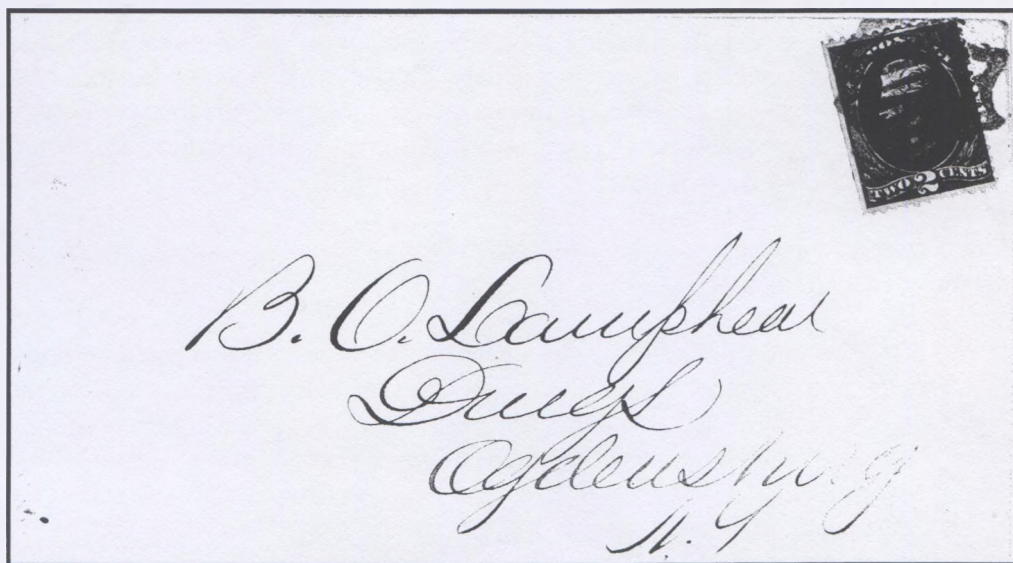 TWO 2 CENTS
B. O. Lamphear
Drugs
Ogdensburg
N. Y